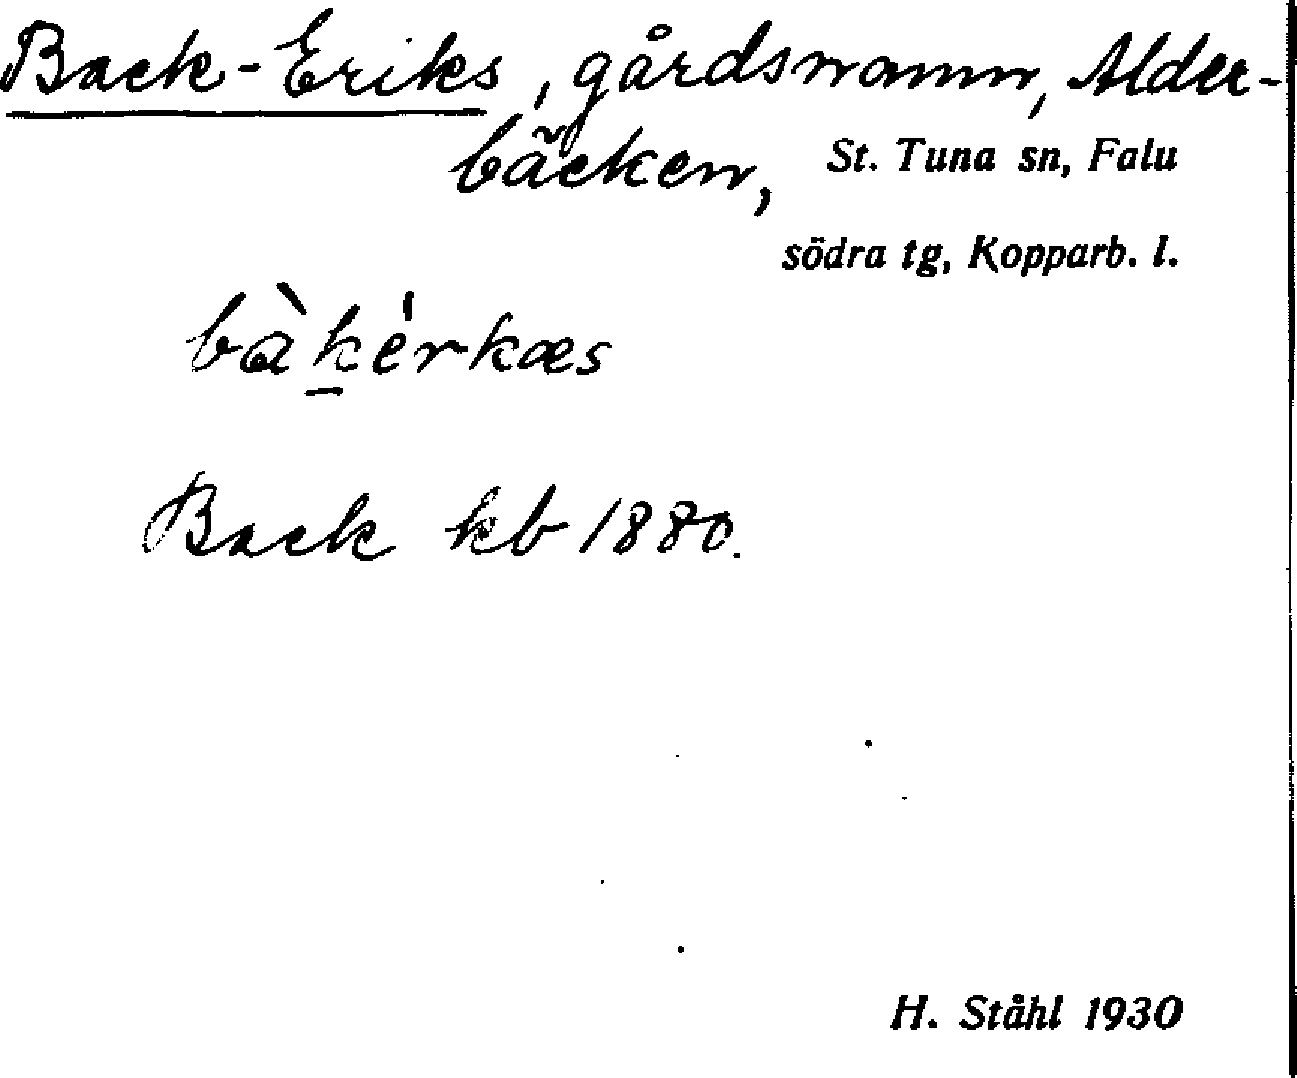 Back-Eriks, gårdsnamn, Alder-
bäcken, St. Tuna sn, Falu
södra tg, Kopparb. l.
bàk̲érkæs
Back kb 1880.
H. Ståhl 1930